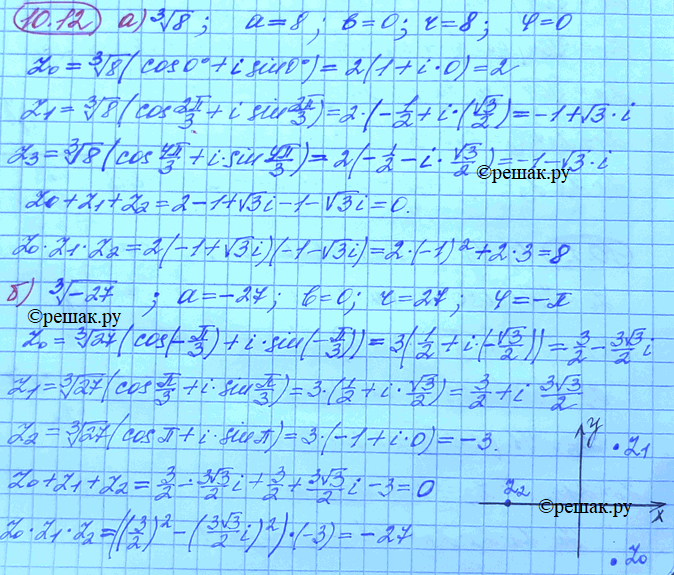 10.12 а) ∛8; a=8; b=0; r=8; φ=0
z₀ = ∛8(cos0°+i sin0°)=2(1+i·0)=2
z₁ = ∛8(cos 2π/3 + i sin 2π/3)=2·(-1/2+i·(√3/2))=-1+√3·i
z₃ = ∛8(cos 4π/3 + i·sin 4π/3)=2(-1/2-i·√3/2)=-1-√3·i
©решак.ру
z₀+z₁+z₂=2-1+√3i-1-√3i=0.
z₀·z₁·z₂=2(-1+√3i)(-1-√3i)=2·(-1)²+2·3=8
б) ∛-27; a=-27; b=0; r=27; φ=-π
©решак.ру
z₀=∛27(cos(-π/3)+i·sin(-π/3))=3(1/2+i·(-√3/2))=3/2-3√3/2 i
z₁=∛27(cos π/3+i·sin π/3)=3·(1/2+i·√3/2)=3/2+i 3√3/2
z₂=∛27(cosπ+i·sinπ)=3·(-1+i·0)=-3.
z₀+z₁+z₂=3/2-3√3/2 i+3/2+3√3/2 i-3=0
z₀·z₁·z₂=((3/2)²-(3√3/2 i)²)·(-3)=-27
y
z₁
z₂
©решак.ру
x
z₀